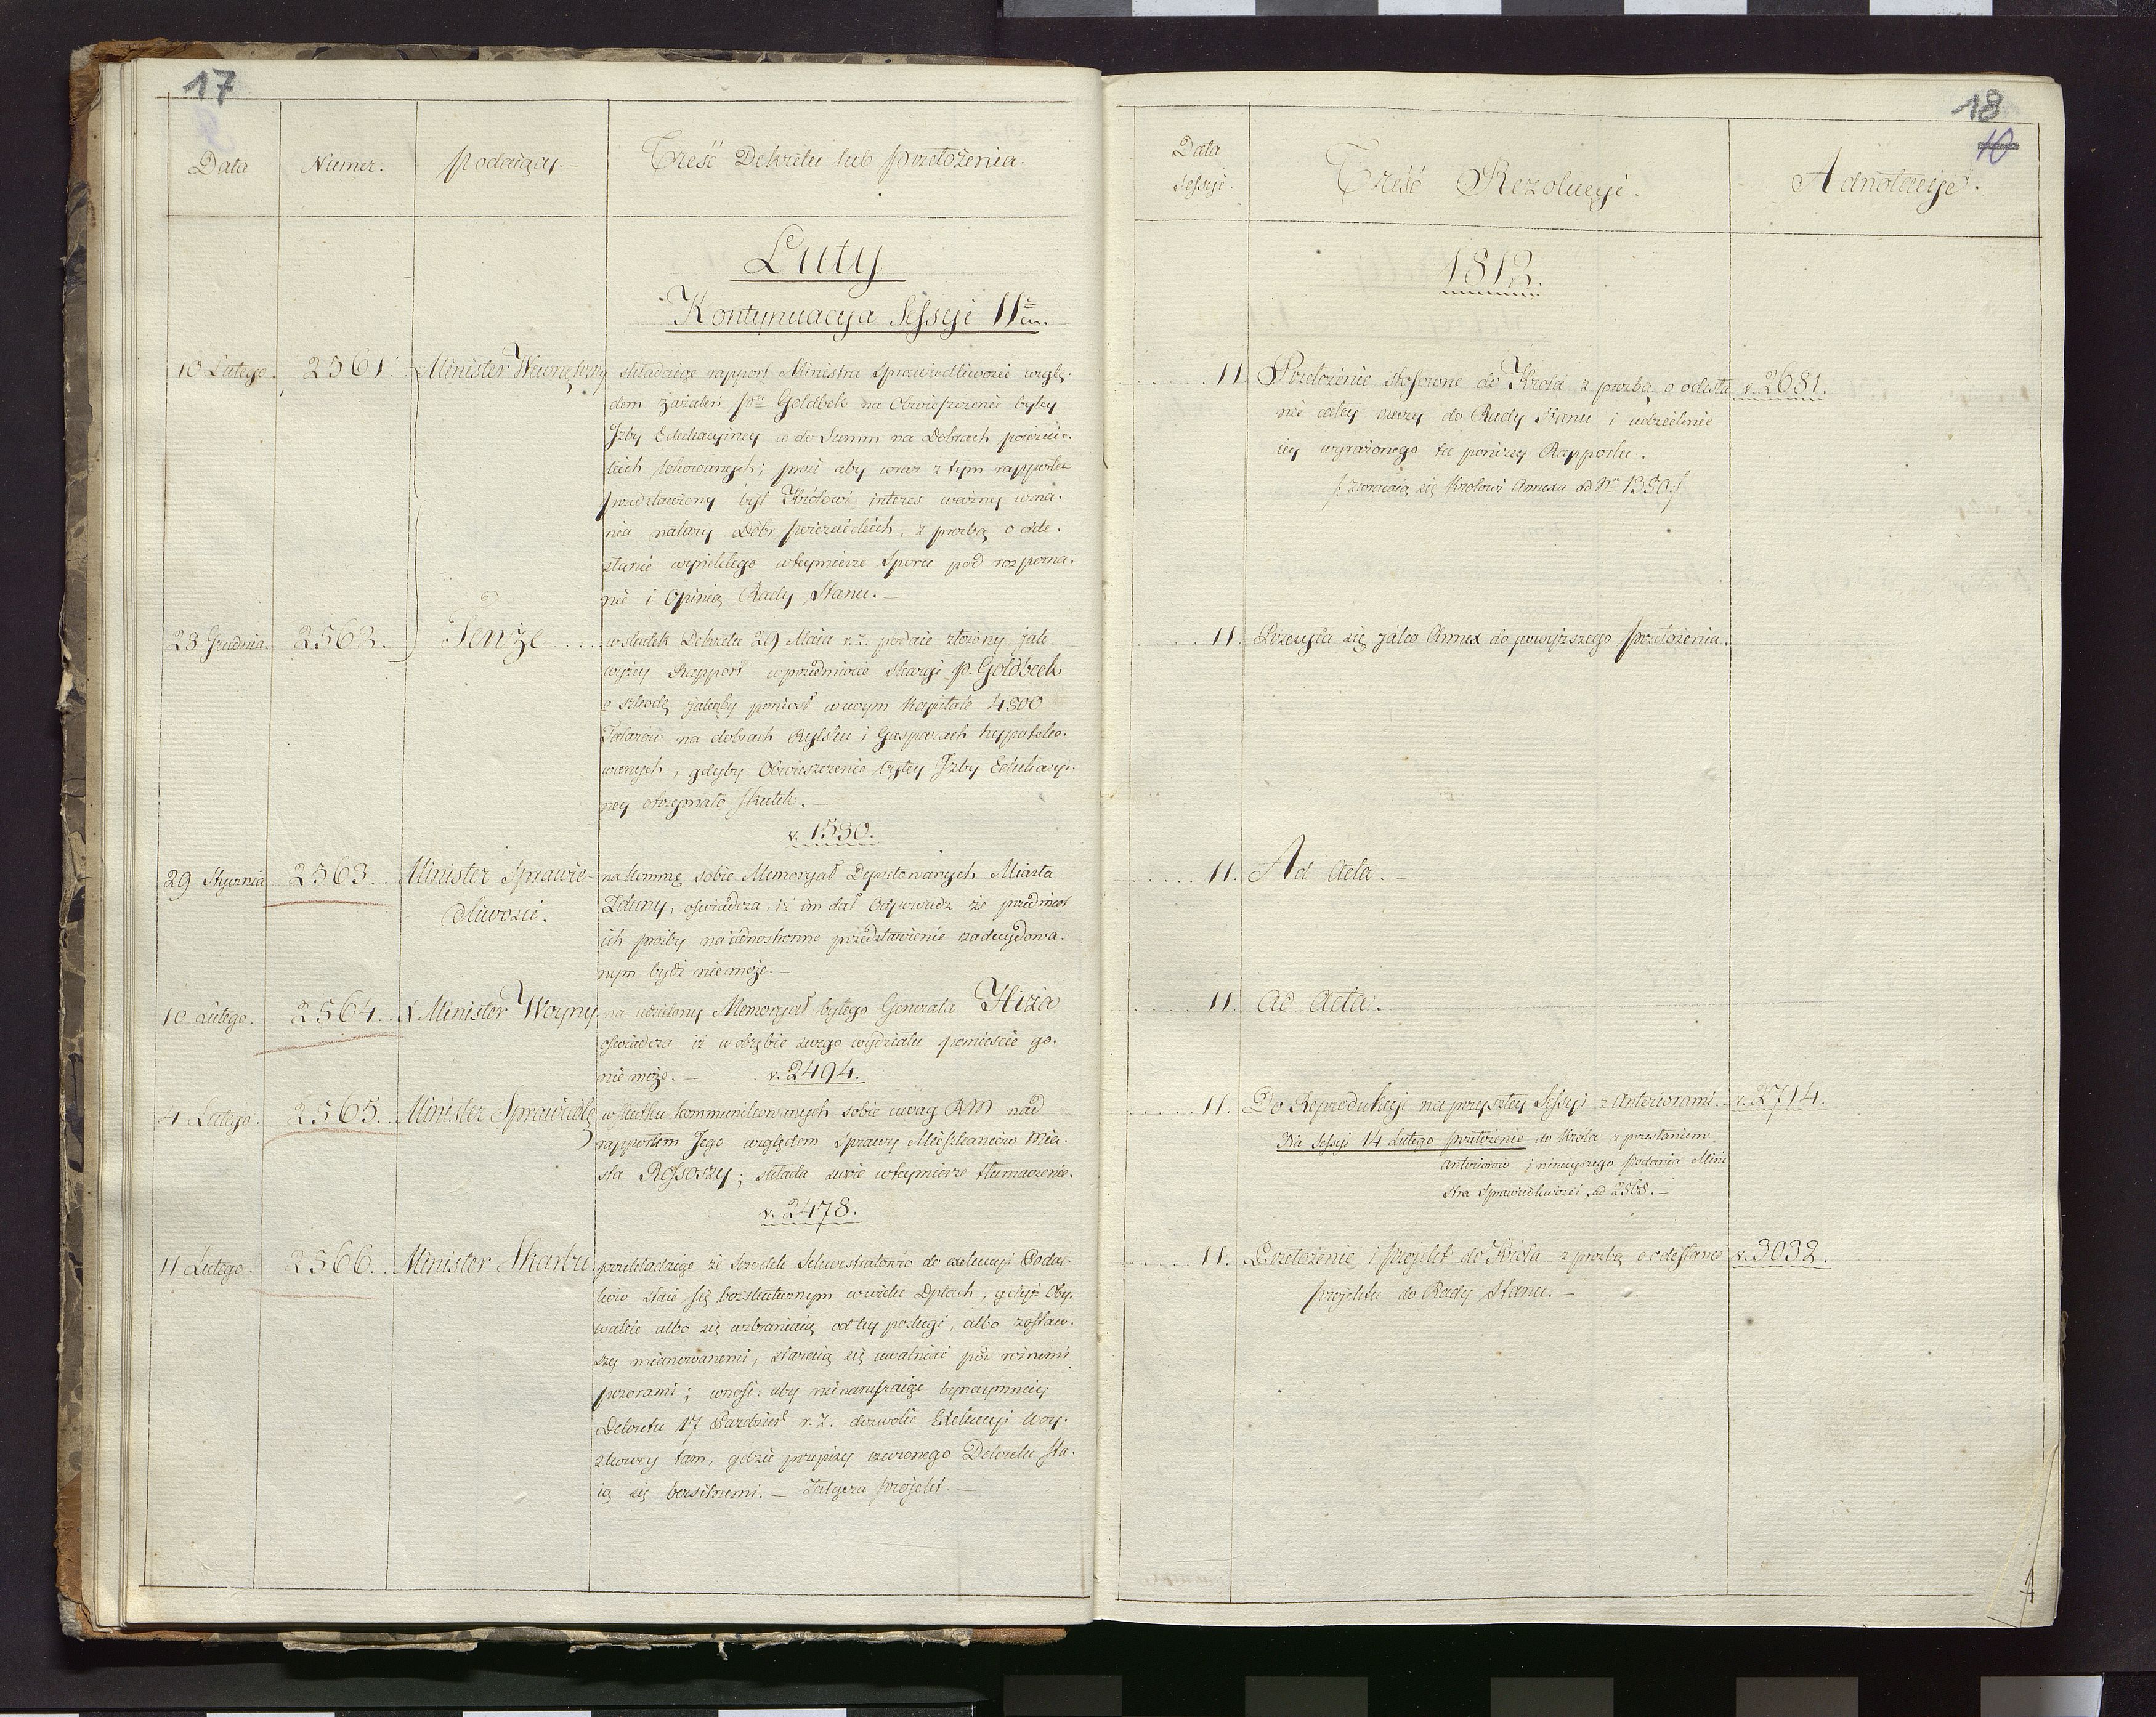 17
Data
Numer.
podaiący.
Treść Dekretu lub przełożenia.
Luty
Kontynuacya Sessyi 11.
10 Lutego. 2561. Minister Wewnętrzny składaiąc rapport Ministra Sprawiedliwości wzglę-
dem zażaleń Pna Goldbek na Obwieszczenie byłey
Jzby Edukacyiney co do Summ na Dobrach poiezuic-
kich lokowanych; prosi aby wraz z tym rapportem
przedstawiony był Królowi interes ważney
nia natury Dóbr poiezuickich, z prozbą o ode-
słanie wynikłego wteymierze Sporu pod rozpozna-
nie i Opinią Rady Stanu.
28 Grudnia. 2562. Tenże wskutek Dekretu 29 Maia r.z. podaie złożony jak
wyżey Rapport wprzedmiocie skargi p. Goldbeck
o szkodę jakąby poniosł wswym kapitale 4800
Talarów na dobrach Rylsku i Gasparach hypoteko-
wanych, gdyby Obwieszczenie byłey Jzby Edukacyi-
ney otrzymało skutek.
v. 1530.
29 Stycznia 2563. Minister Sprawie- na kommę sobie Memoryał Deputowanych Miasta
dliwości. Zduny, oświadcza, iż im dał Odpowiedz że przedmiot
ich prośby na iednostronne przedstawienie zadecydowa-
nym bydź niemoże.
10 Lutego. 2564. Minister Woyny na udzielony Memoryał byłego Generała Hiża
oświadcza iż w obrębie swego wydziału pomieście go.
niemoże. v. 2494.
4 Lutego. 2565. Minister Sprawiedl wskutku kommunikowanych sobie uwag RM nad
rapportem Jego względem sprawy Mieszkańców Mia-
sta Rossoszy; składa swoie wteymierze tłumaczenie.
v. 2478.
11 Lutego. 2566. Minister Skarbu przekładaiąc że środek Sekwestratorów do exekucyi Podat-
kow staie się bezskutecznym wwielu Dptach, gdyż Oby-
watele albo się wzbraniaią od tey posługi, albo zostaw-
szy mianowanemi, staraią się uwalniać pod rożnemi
pozorami; wnosi: aby nienaruszaiąc bynaymniey
Dekretu 17 Pazdzier r.z. dozwolić Exekucyi Woy-
skowey tam, gdzie przepisy rzeczonego Dekretu sta-
ią się bezsilnemi. Załącza projekt.
18
10
Data
Sessyi.
Treść Rezolucyi.
Adnotacye.
1812.
11. Przełożenie stosowne do Króla z prozbą o odesła v. 2681.
nie całey rzeczy do Rady Stanu i udzielenie
iey wyrażonego tu poniżey Rapportu.
/: zwracaią się Królowi Annexa ad Nr 1350:/
11. Przesyła się jako Annex do powyższego przełożenia.
11. Ad Acta.
11. Ad Acta.
11. Do Reprodukcyi na przyszłey Sessyi z Anteriorami. v. 2714.
Na Sessyi 14 Lutego przełożenie do Króla z przesłaniem
anteriorów i ninieyszego podania Mini
stra Sprawiedliwości ad 2565.
11. Przełożenie i projekt do Króla z prozbą o odesłanie v. 3032.
projektu do Rady Stanu.